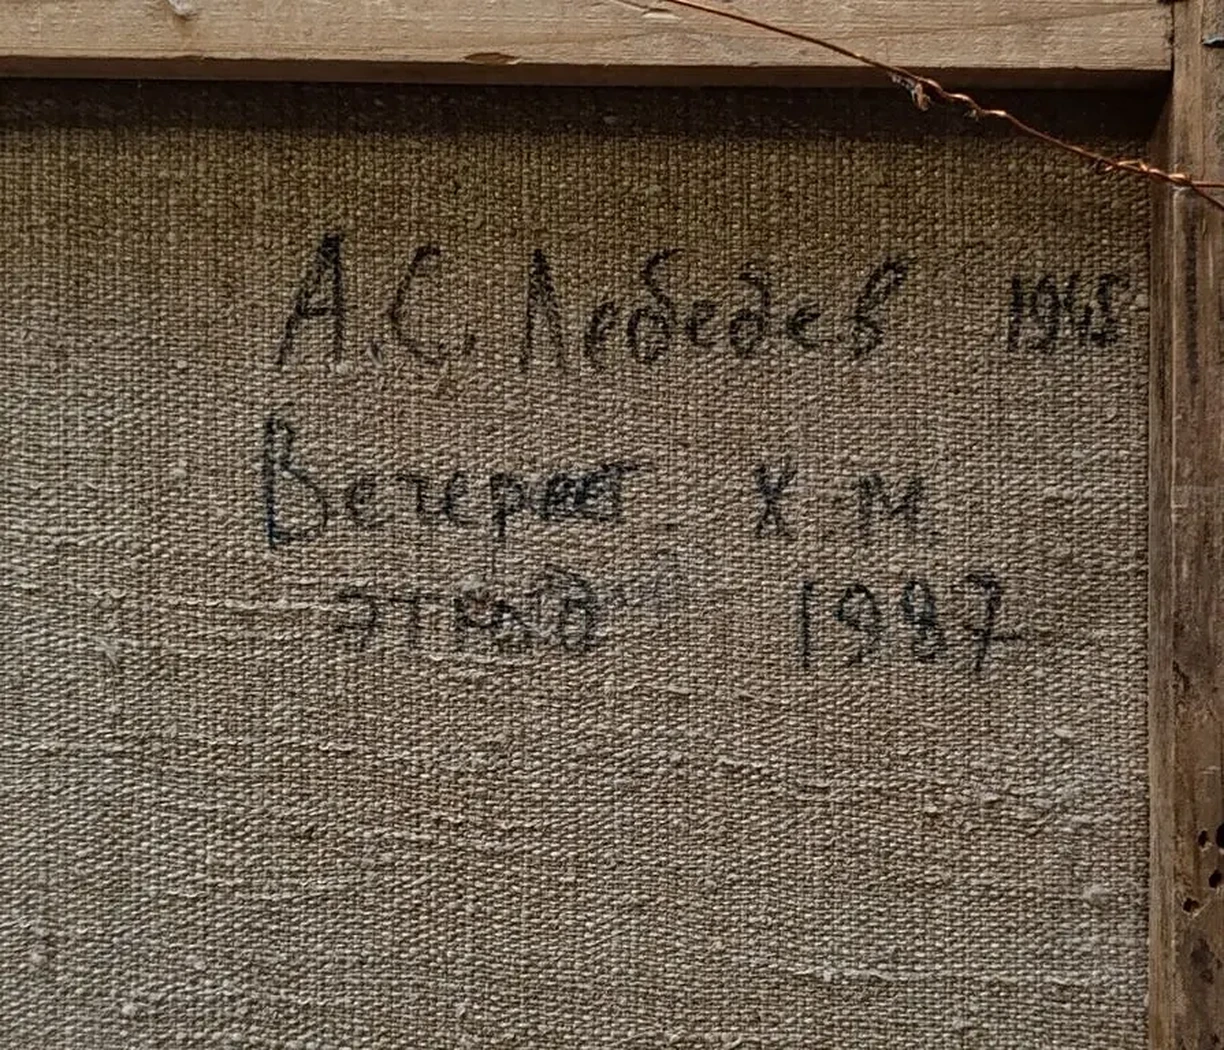 А.С. Лебедев 1945
Вечереет Х.М.
этюд 1987